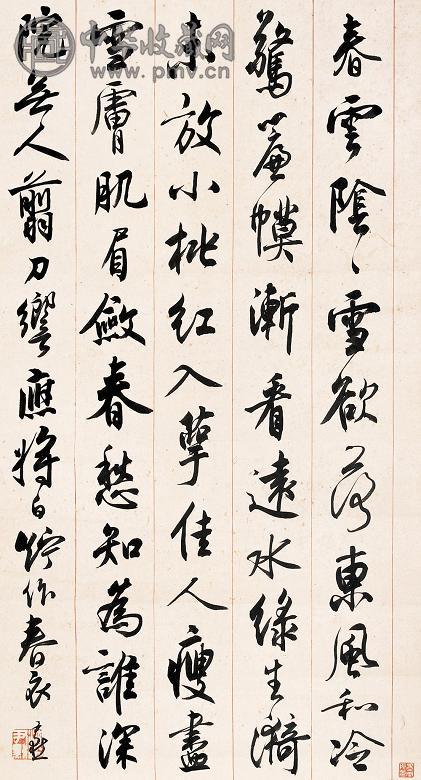 春雲陰〻雪欲落東風和冷
驚簾幙漸看遠水綠生漪
未放小桃紅入萼佳人瘦盡
雪膚肌眉斂春愁知為誰深
院無人翦刀響應將白紵作春衣 尹默
中华收藏网
www.pmv.cn